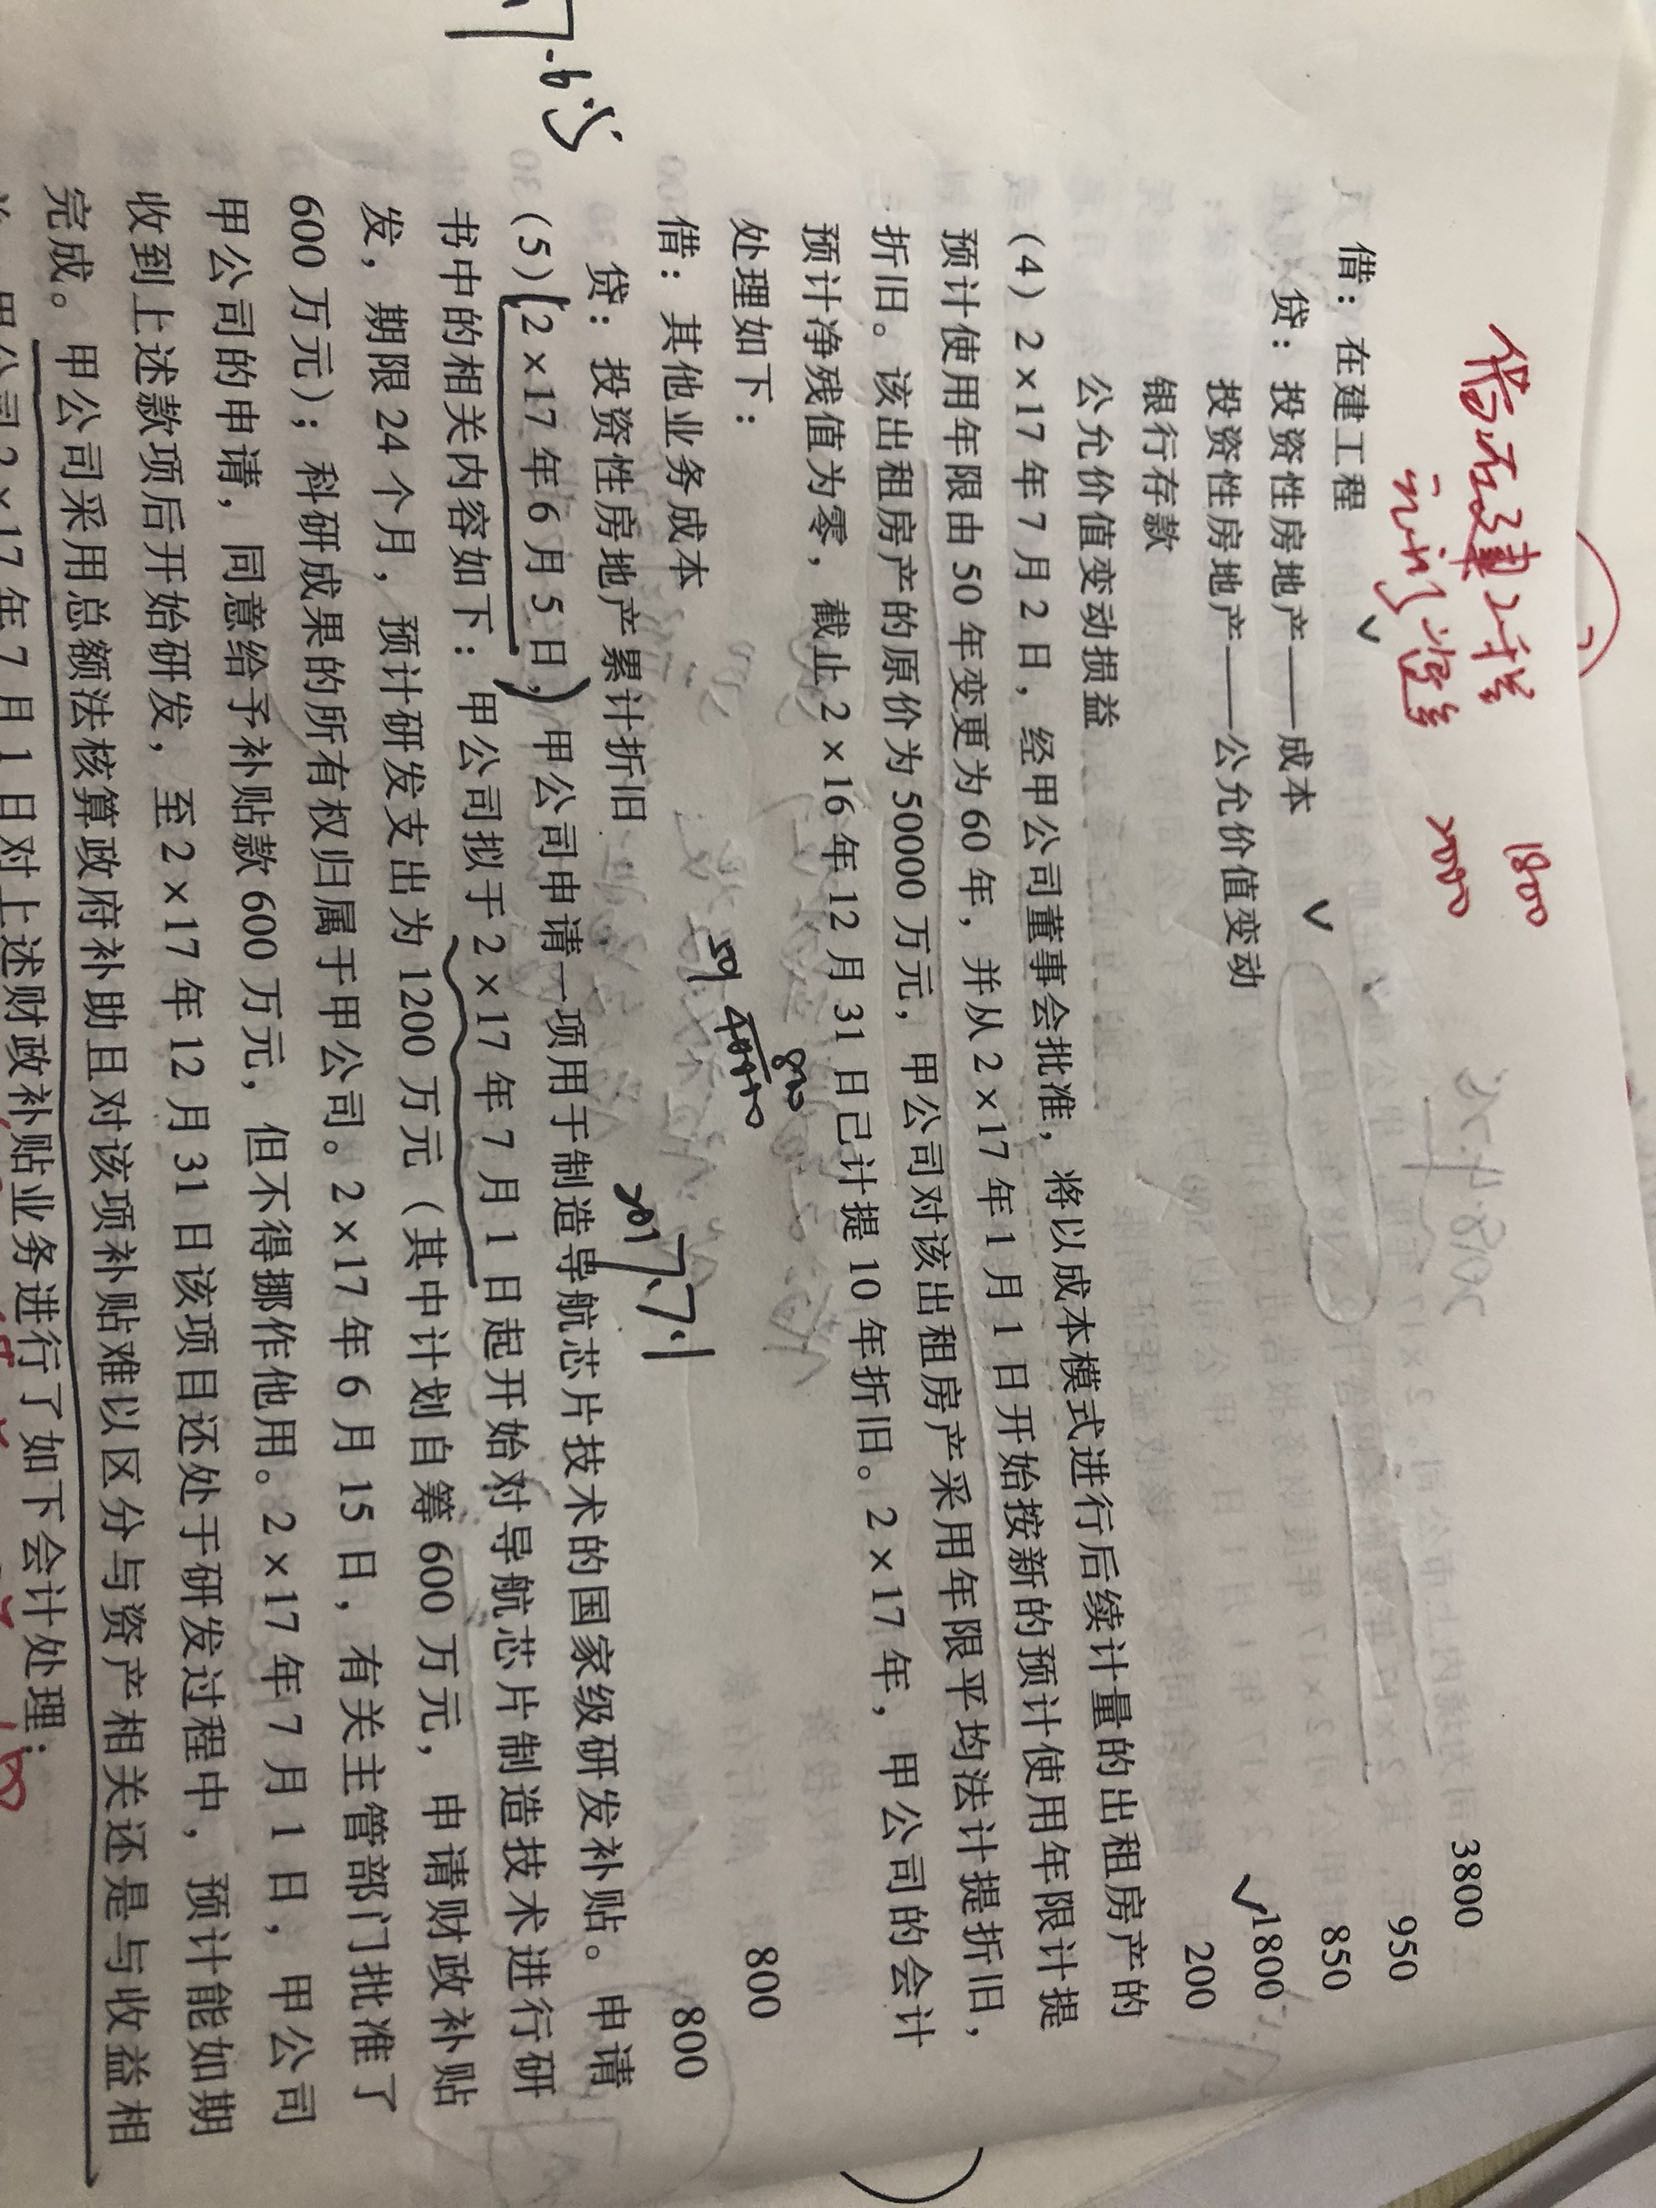 1800
2000
借：在建工程 3800
贷：投资性房地产——成本 950
投资性房地产——公允价值变动 850
银行存款 1800
公允价值变动损益 200
（4）2×17年7月2日，经甲公司董事会批准，将以成本模式进行后续计量的出租房产的
预计使用年限由50年变更为60年，并从2×17年1月1日开始按新的预计使用年限计提
折旧。该出租房产的原价为50000万元，甲公司对该出租房产采用年限平均法计提折旧，
预计净残值为零，截止2×16年12月31日已计提10年折旧。2×17年，甲公司的会计
处理如下：
800
借：其他业务成本 800
贷：投资性房地产累计折旧 800
2017.7.1
（5）（2×17年6月5日，）甲公司申请一项用于制造导航芯片技术的国家级研发补贴。申请
书中的相关内容如下：甲公司拟于2×17年7月1日起开始对导航芯片制造技术进行研
发，期限24个月，预计研发支出为1200万元（其中计划自筹600万元，申请财政补贴
600万元）；科研成果的所有权归属于甲公司。2×17年6月15日，有关主管部门批准了
甲公司的申请，同意给予补贴款600万元，但不得挪作他用。2×17年7月1日，甲公司
收到上述款项后开始研发，至2×17年12月31日该项目还处于研发过程中，预计能如期
完成。甲公司采用总额法核算政府补助且对该项补贴难以区分与资产相关还是与收益相
甲公司2×17年7月1日对上述财政补贴业务进行了如下会计处理：